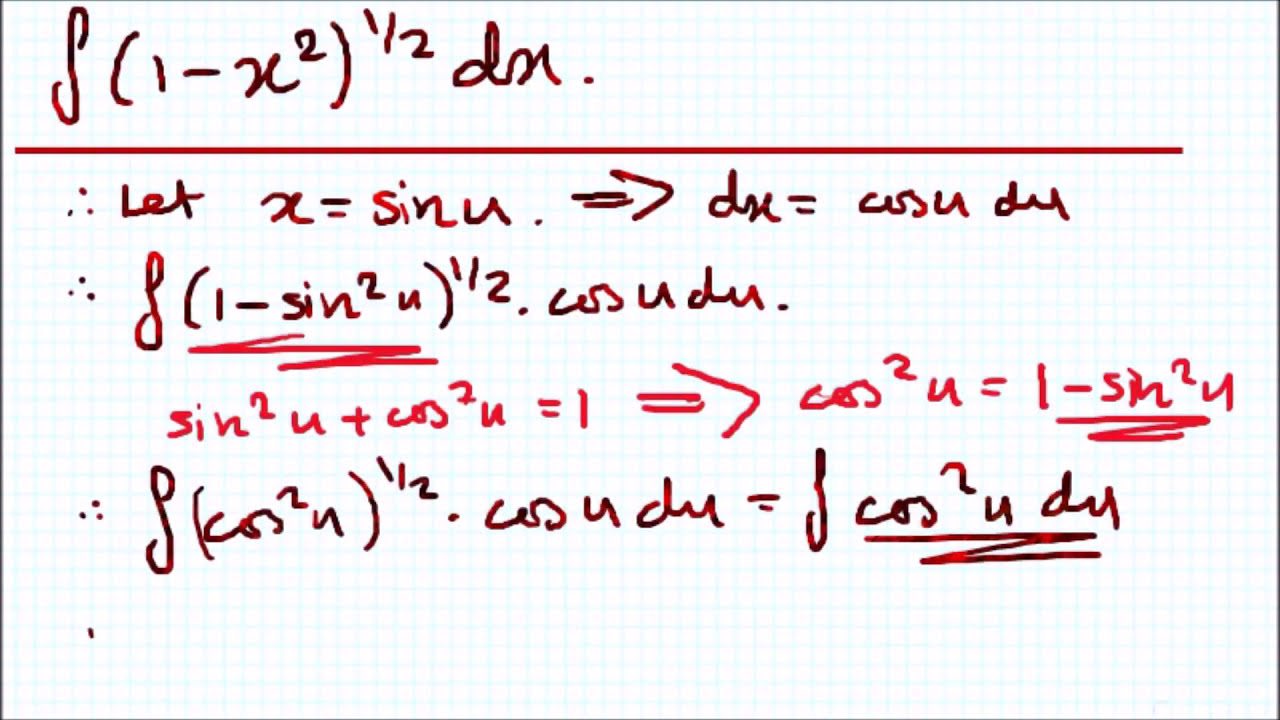 ∫ (1 - x²)^1/2 dx.
∴ Let x = sin u. => dx = cos u du
∴ ∫ (1 - sin² u)^1/2 . cos u du.
sin² u + cos² u = 1 => cos² u = 1 - sin² u
∴ ∫ (cos² u)^1/2 . cos u du = ∫ cos² u du
.